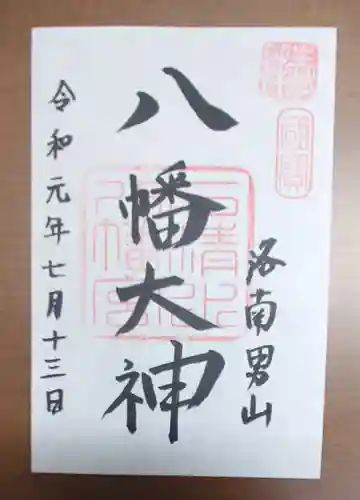 洛南男山
八幡大神
令和元年七月十三日
石清水
八幡宮
國寳